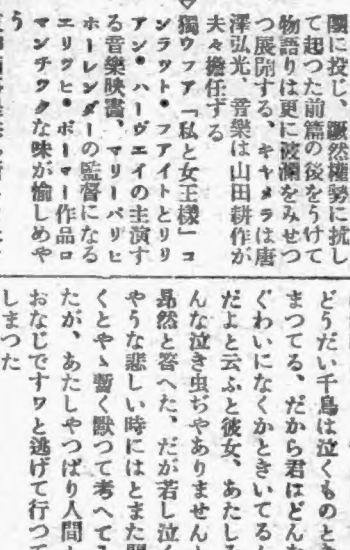 團に投じ、蹶然權勢に抗し
て起つた前篇の後をうけて
物語りは更に波瀾をみせつ
つ展開する、キャメラは唐
澤弘光、音樂は山田耕作が
夫々擔任する
▽
獨ウフア「私と女王樣」コ
ンラツト・フアイトとリリ
アン・ハーヴエイの主演す
る音樂映畫、マリーバリヒ
ホーレンダーの監督になる
エリツヒ・ポーマー作品ロ
マンチツクな味が愉しめや
う
どうだい千鳥は泣くものとき
まつてる、だから君はどんな
ぐわいになくかときいてる
だよと云ふと彼女、あたし
んな泣き虫ぢやありません
昻然と答へた、だが若し泣く
やうな悲しい時にはとまた
くとやゝ暫く獸つて考へて
たが、あたしやつぱり人間
おなじですワと逃げて行つて
しまつた